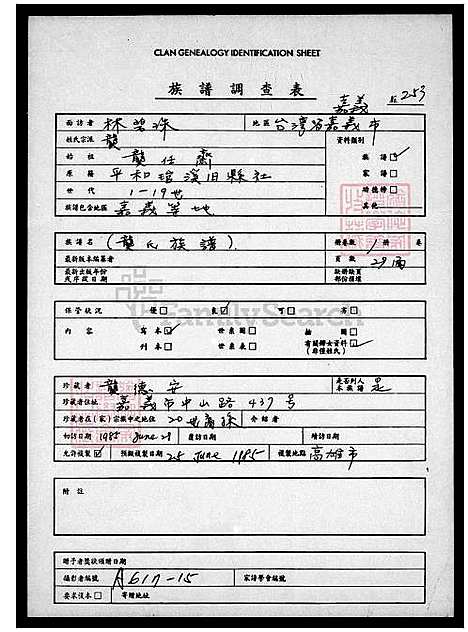 CLAN GENEALOGY IDENTIFICATION SHEET
族譜調查表
嘉義 253
面訪者 林碧珠 地區 台灣省嘉義市
姓氏宗派 龔 資料類別
始祖 龔任齋 族譜 ✓
原籍 平和琯溪旧縣社 家譜
世代 1-19世
族譜包含地區 嘉義等地 其他
族譜名 (龔氏族譜) 冊卷數 1 冊 卷
最新版本編纂者 頁數 29面
最新出版年份或序跋日期 缺冊缺頁部份損壞
保管狀況 優□ 良☑ 可□ 劣□
內容 寫本☑ 世系圖□ 繪圖□
刊本□ 世系表□ 有關婦女資料☑
(非僅姓氏)
珍藏者 龔德安 是否列入本族譜 是
珍藏者住址 嘉義市中山路437号
珍藏者在(家)宗族中之地位 20世裔孫 介紹者
初訪日期 1985 June 29 續訪日期
允許複製☑ 預擬複製日期 25 June 1985 複製地點 高雄市
附註
贈予者獎狀頒贈日期
攝影者編號 A617-15 家譜學會編號
要求複本□ 寄贈地址
FamilySearch